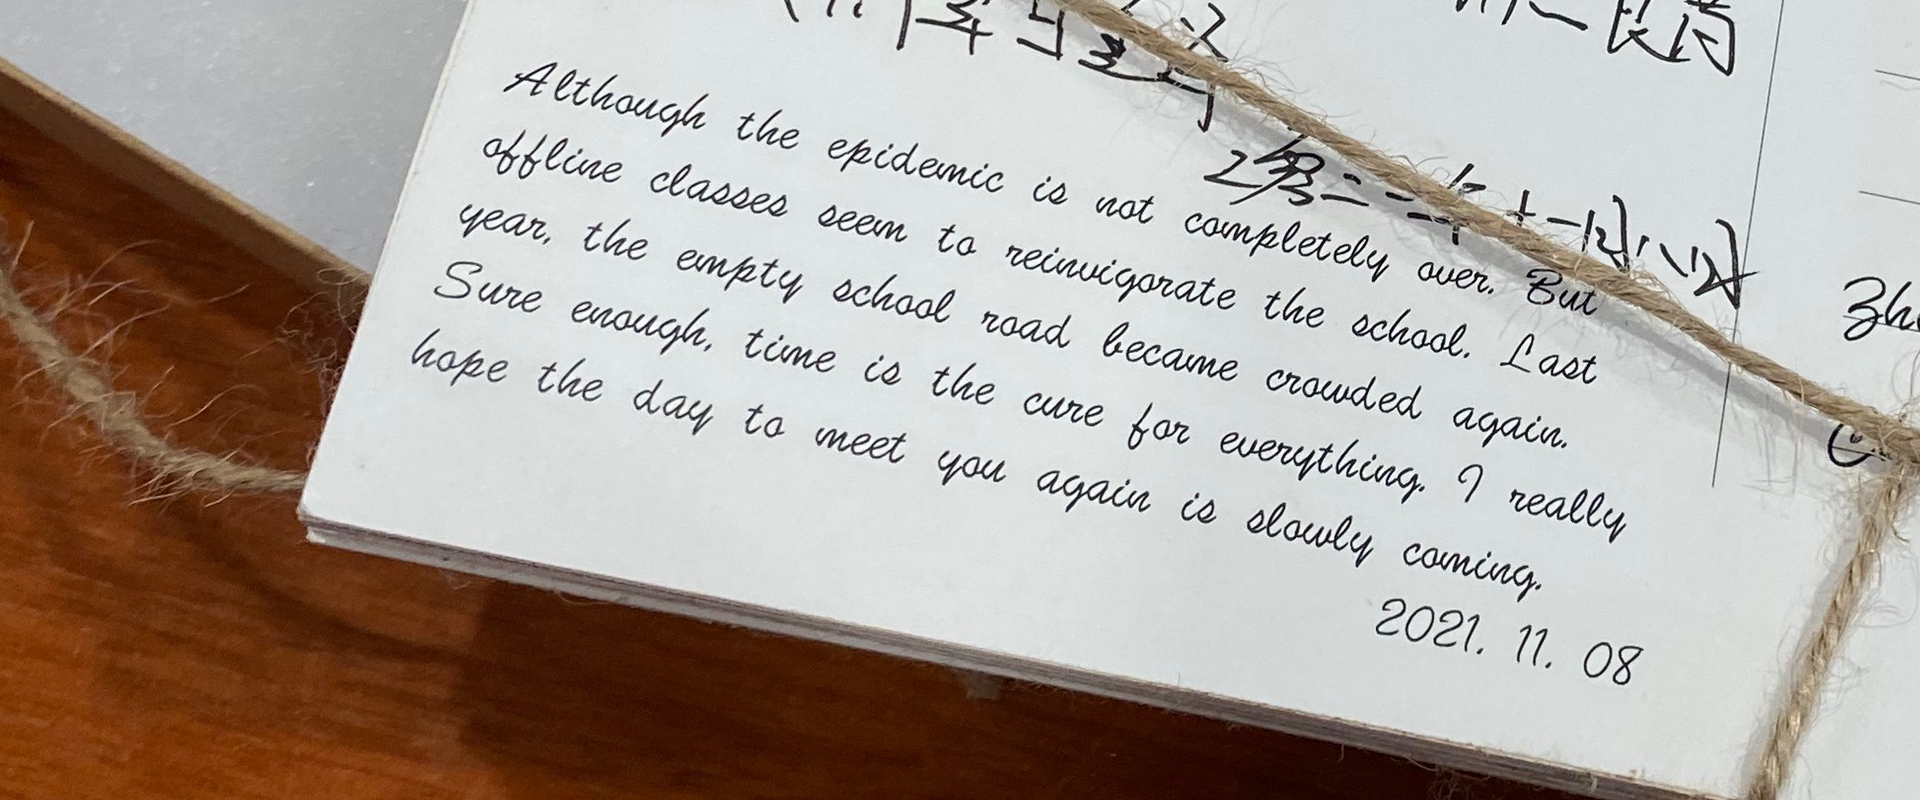 Although the epidemic is not completely over. But
offline classes seem to reinvigorate the school. Last
year, the empty school road became crowded again.
Sure enough, time is the cure for everything. I really
hope the day to meet you again is slowly coming.
2021. 11. 08